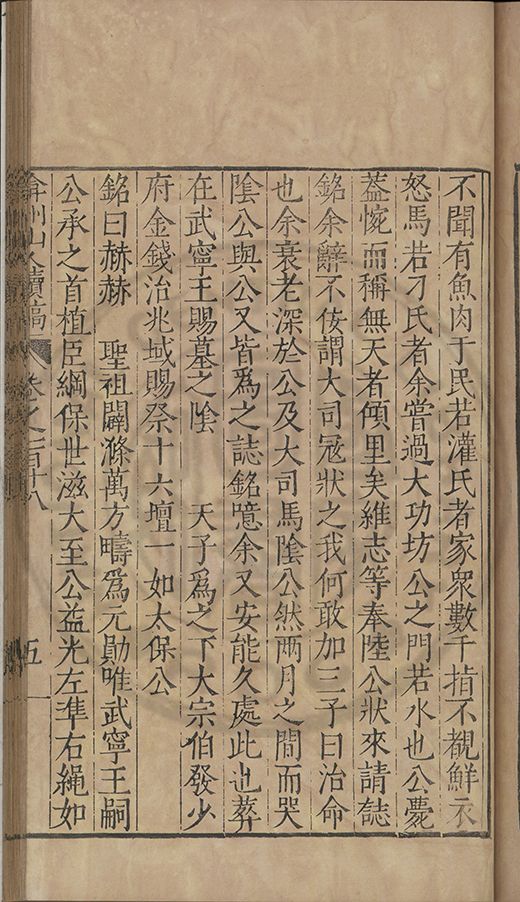 不聞有魚肉于民若灌氏者家衆數千指不覩鮮衣
怒馬若刁氏者余嘗過大功坊公之門若水也公薨
葢惋而稱無天者傾里矣維志等奉陸公狀來請誌
銘余辭不佞謂大司冦狀之我何敢加三子曰治命
也余衰老深於公及大司馬隂公然兩月之間而哭
隂公與公又皆爲之誌銘噫余又安能久處此也葬
在武寧王賜墓之隂　　天子爲之下大宗伯發少
府金錢治兆域賜祭十六壇一如太保公
銘曰赫赫　聖祖闢滌萬方疇爲元勛唯武寧王嗣
公承之首植臣綱保世滋大至公益光左準右繩如
弇州山人續稿　卷之一百十八　五